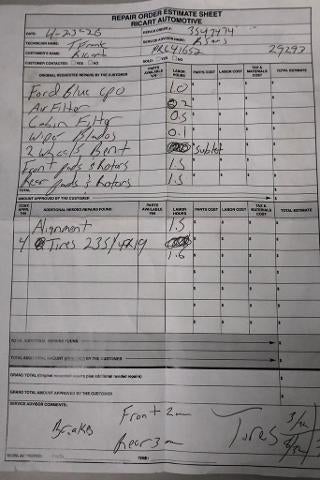 REPAIR ORDER ESTIMATE SHEET
RICART AUTOMOTIVE
DATE: 4-23-26 REPAIR ORDER #: 3547474
TECHNICIAN NAME: T Frank SERVICE ADVISOR NAME:
CUSTOMER'S NAME: Ricart 29292
CUSTOMER CONTACTED: YES NO SOLD: YES NO
ORIGINAL REQUESTED REPAIRS BY THE CUSTOMER PARTS AVAILABLE Y/N LABOR HOURS PARTS COST LABOR COST TAX & MATERIALS COST TOTAL ESTIMATE
Ford Blue CPO 1.0
Air Filter .2
Cabin Filter 0.5
Wiper Blades 0.1
2 Wheels Bent Sublet
Front pads & Rotors 1.5
Rear pads & Rotors 1.5
TOTAL
AMOUNT APPROVED BY THE CUSTOMER
ADDITIONAL NEEDED REPAIRS FOUND PARTS AVAILABLE Y/N LABOR HOURS PARTS COST LABOR COST TAX & MATERIALS COST TOTAL ESTIMATE
Alignment 1.5
4 Tires 235/45/19 1.6
TOTAL ADDITIONAL REPAIRS FOUND
TOTAL ADDITIONAL AMOUNT APPROVED BY THE CUSTOMER
GRAND TOTAL (Original requested repairs plus additional needed repairs)
GRAND TOTAL AMOUNT APPROVED BY THE CUSTOMER
SERVICE ADVISOR COMMENTS:
Front 2mm
Brakes Tires 3/32
Rear 3m
TIME: